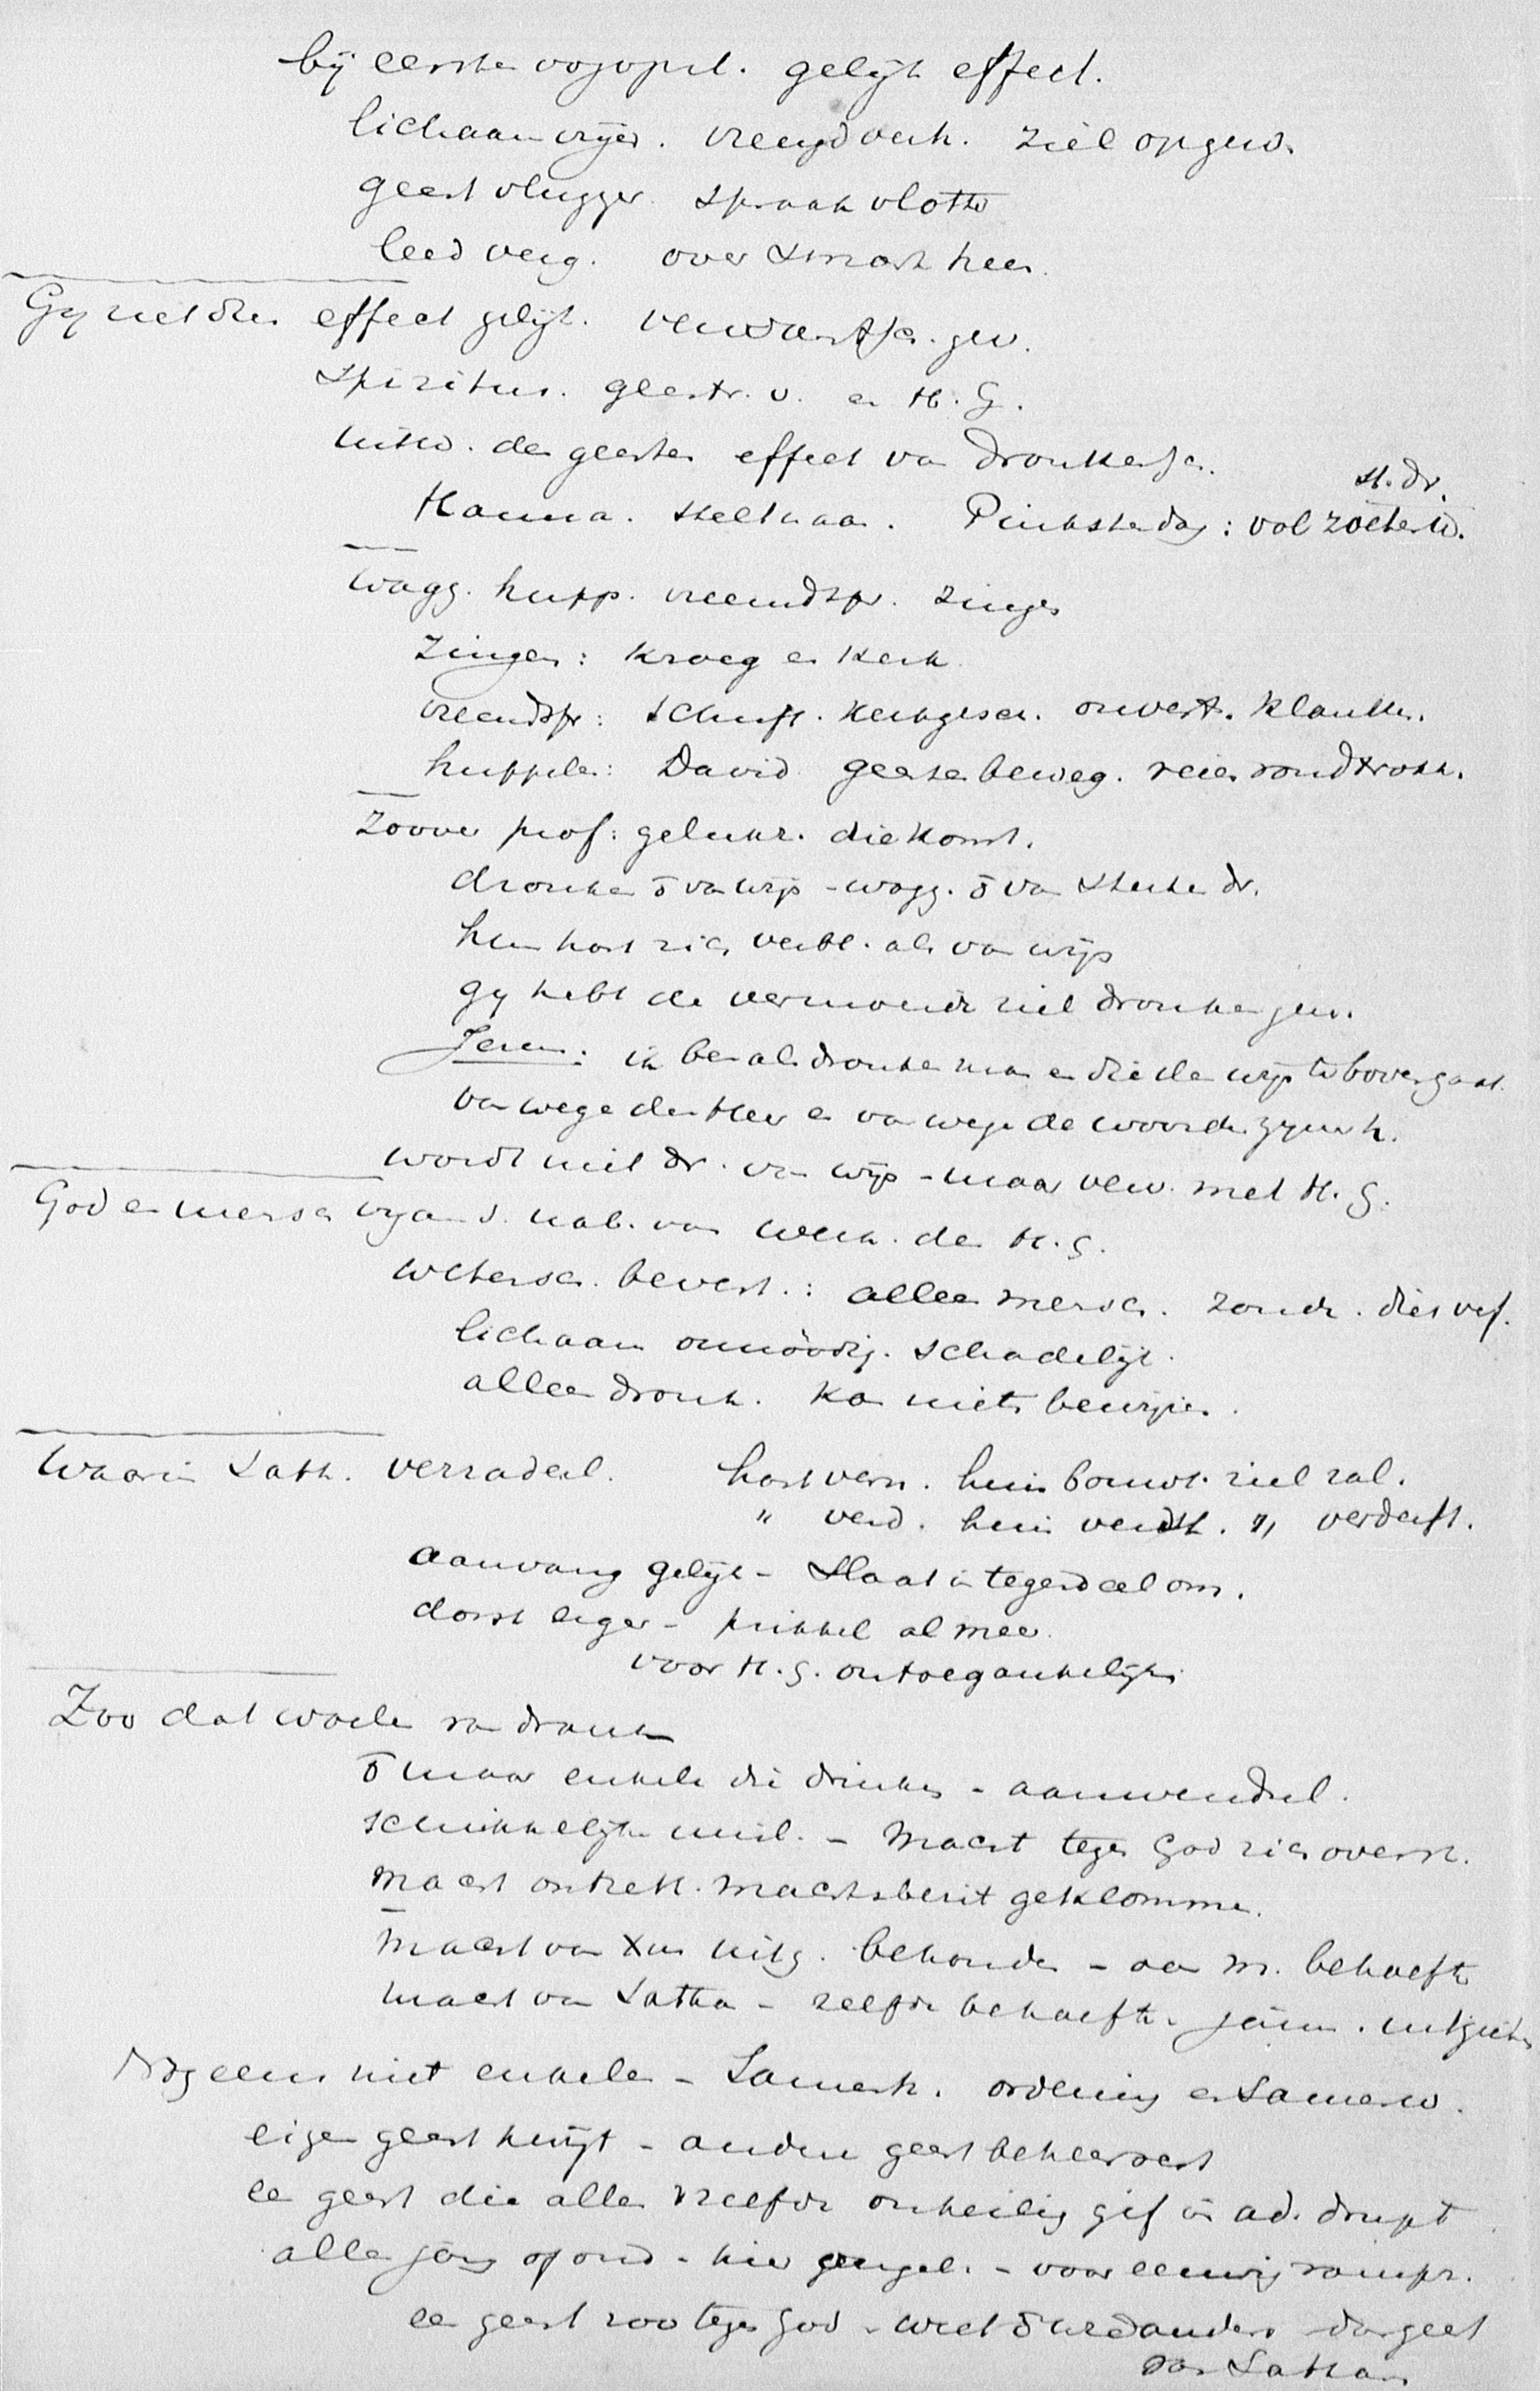 bij eerste oogopsl. gelijk effect.
lichaam vrijer. vreugdverh. ziel opgew.
geest vlugger spraak vlotter
leed verg. over smart heen.
Gij ziet dus effect gelijk. verwantsch. gew.
Spiritus. geestr. v. en H. G.
uitw. des geestes effect van dronkensch.
st. dr.
Hanna. Pinksterdag: vol zoeten w.
wagg. hupp. vreemdspr. zingen
Zingen: kroeg en kerk
vreemdspr: Schrift. kerkgesch. onverst. klanken.
huppelen: David geestesbeweg. reien rondtrokk.
Zoover prof: gelukz. die komst.
dronken ō van wijn - wagg. ō van sterken dr.
hun hart zich verbl. als van wijn
gij hebt de vermoeide ziel dronken gem.
Jerem: ik ben als dronken man en dien de wijn te boven gaat
van wege den Heer en van wege de woorden zijner h.
wordt niet dr. van wijn - maar verv. met H. G.
God en mensch vijand. nab. van werk. des H. G.
wetensch. bevest.: alleen mensch. zonder. dier verf.
lichaam onnoodig. schadelijk.
alleen dronk. kan niets bewijzen.
Waarin Sath. verraderl. hart vern. huis bouwt. ziel zal.
" verd. huis verwoest. " verderft.
aanvang gelijk - slaat in tegendeel om.
dorst erger - prikkel al meer.
voor H. G. ontoegankelijk
Zoo dat woelen van drank
ō maar enkelen die drinken - aanwendsel.
schrikkelijk - macht tegen God zich overst.
macht ontrekk. machtsbezit geklommen.
macht van Xus uitg. behouden - aan m. behoefte
macht van Sathan - zelfde behoefte. uitgieten
Nog eens niet enkelen - Samenh. ordening en samenw.
eigen geest krijgt - andere geest beheerscht
een geest die allen zelfde onheilig gif in ad. drupt
allen jong of oud - hier - voor eeuwig rampz.
een geest zoo tegen God - weet ō wie anders dan geest
van Sathan